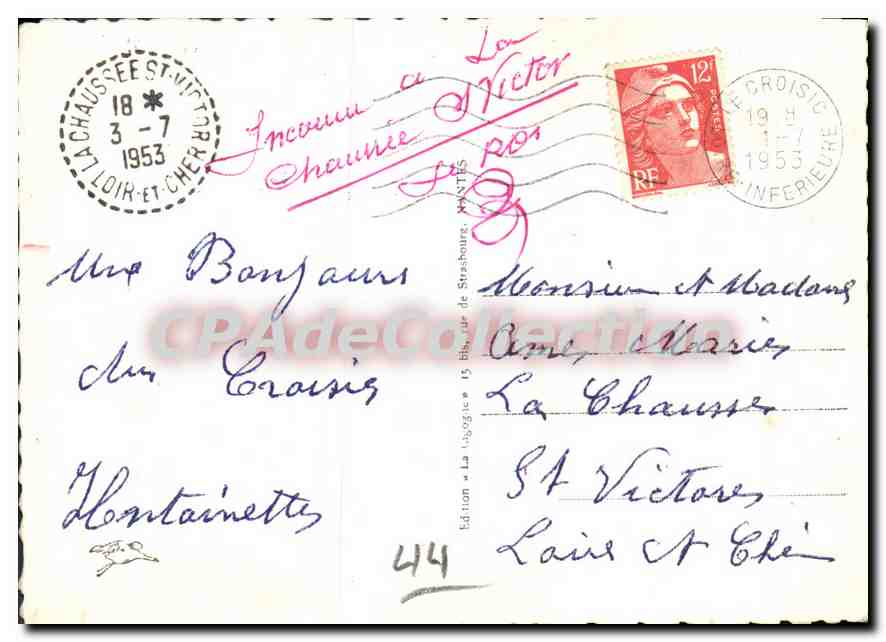 LA CHAUSSÉE ST-VICTOR
18 *
3 - 7
1953
LOIR-ET-CHER
Inconnu a La
Chaussée St Victor
12F
POSTES
RF
LE CROISIC
19 H
1 - 7
1953
INFERIEURE
Une Bonjours
du Croisic
Edition « La Cigogne » 15 bis, rue de Strasbourg, NANTES
Monsieur et Madame
Marie
La Chausse
St Victores
Loire et Ché
44
CPAdeCollection